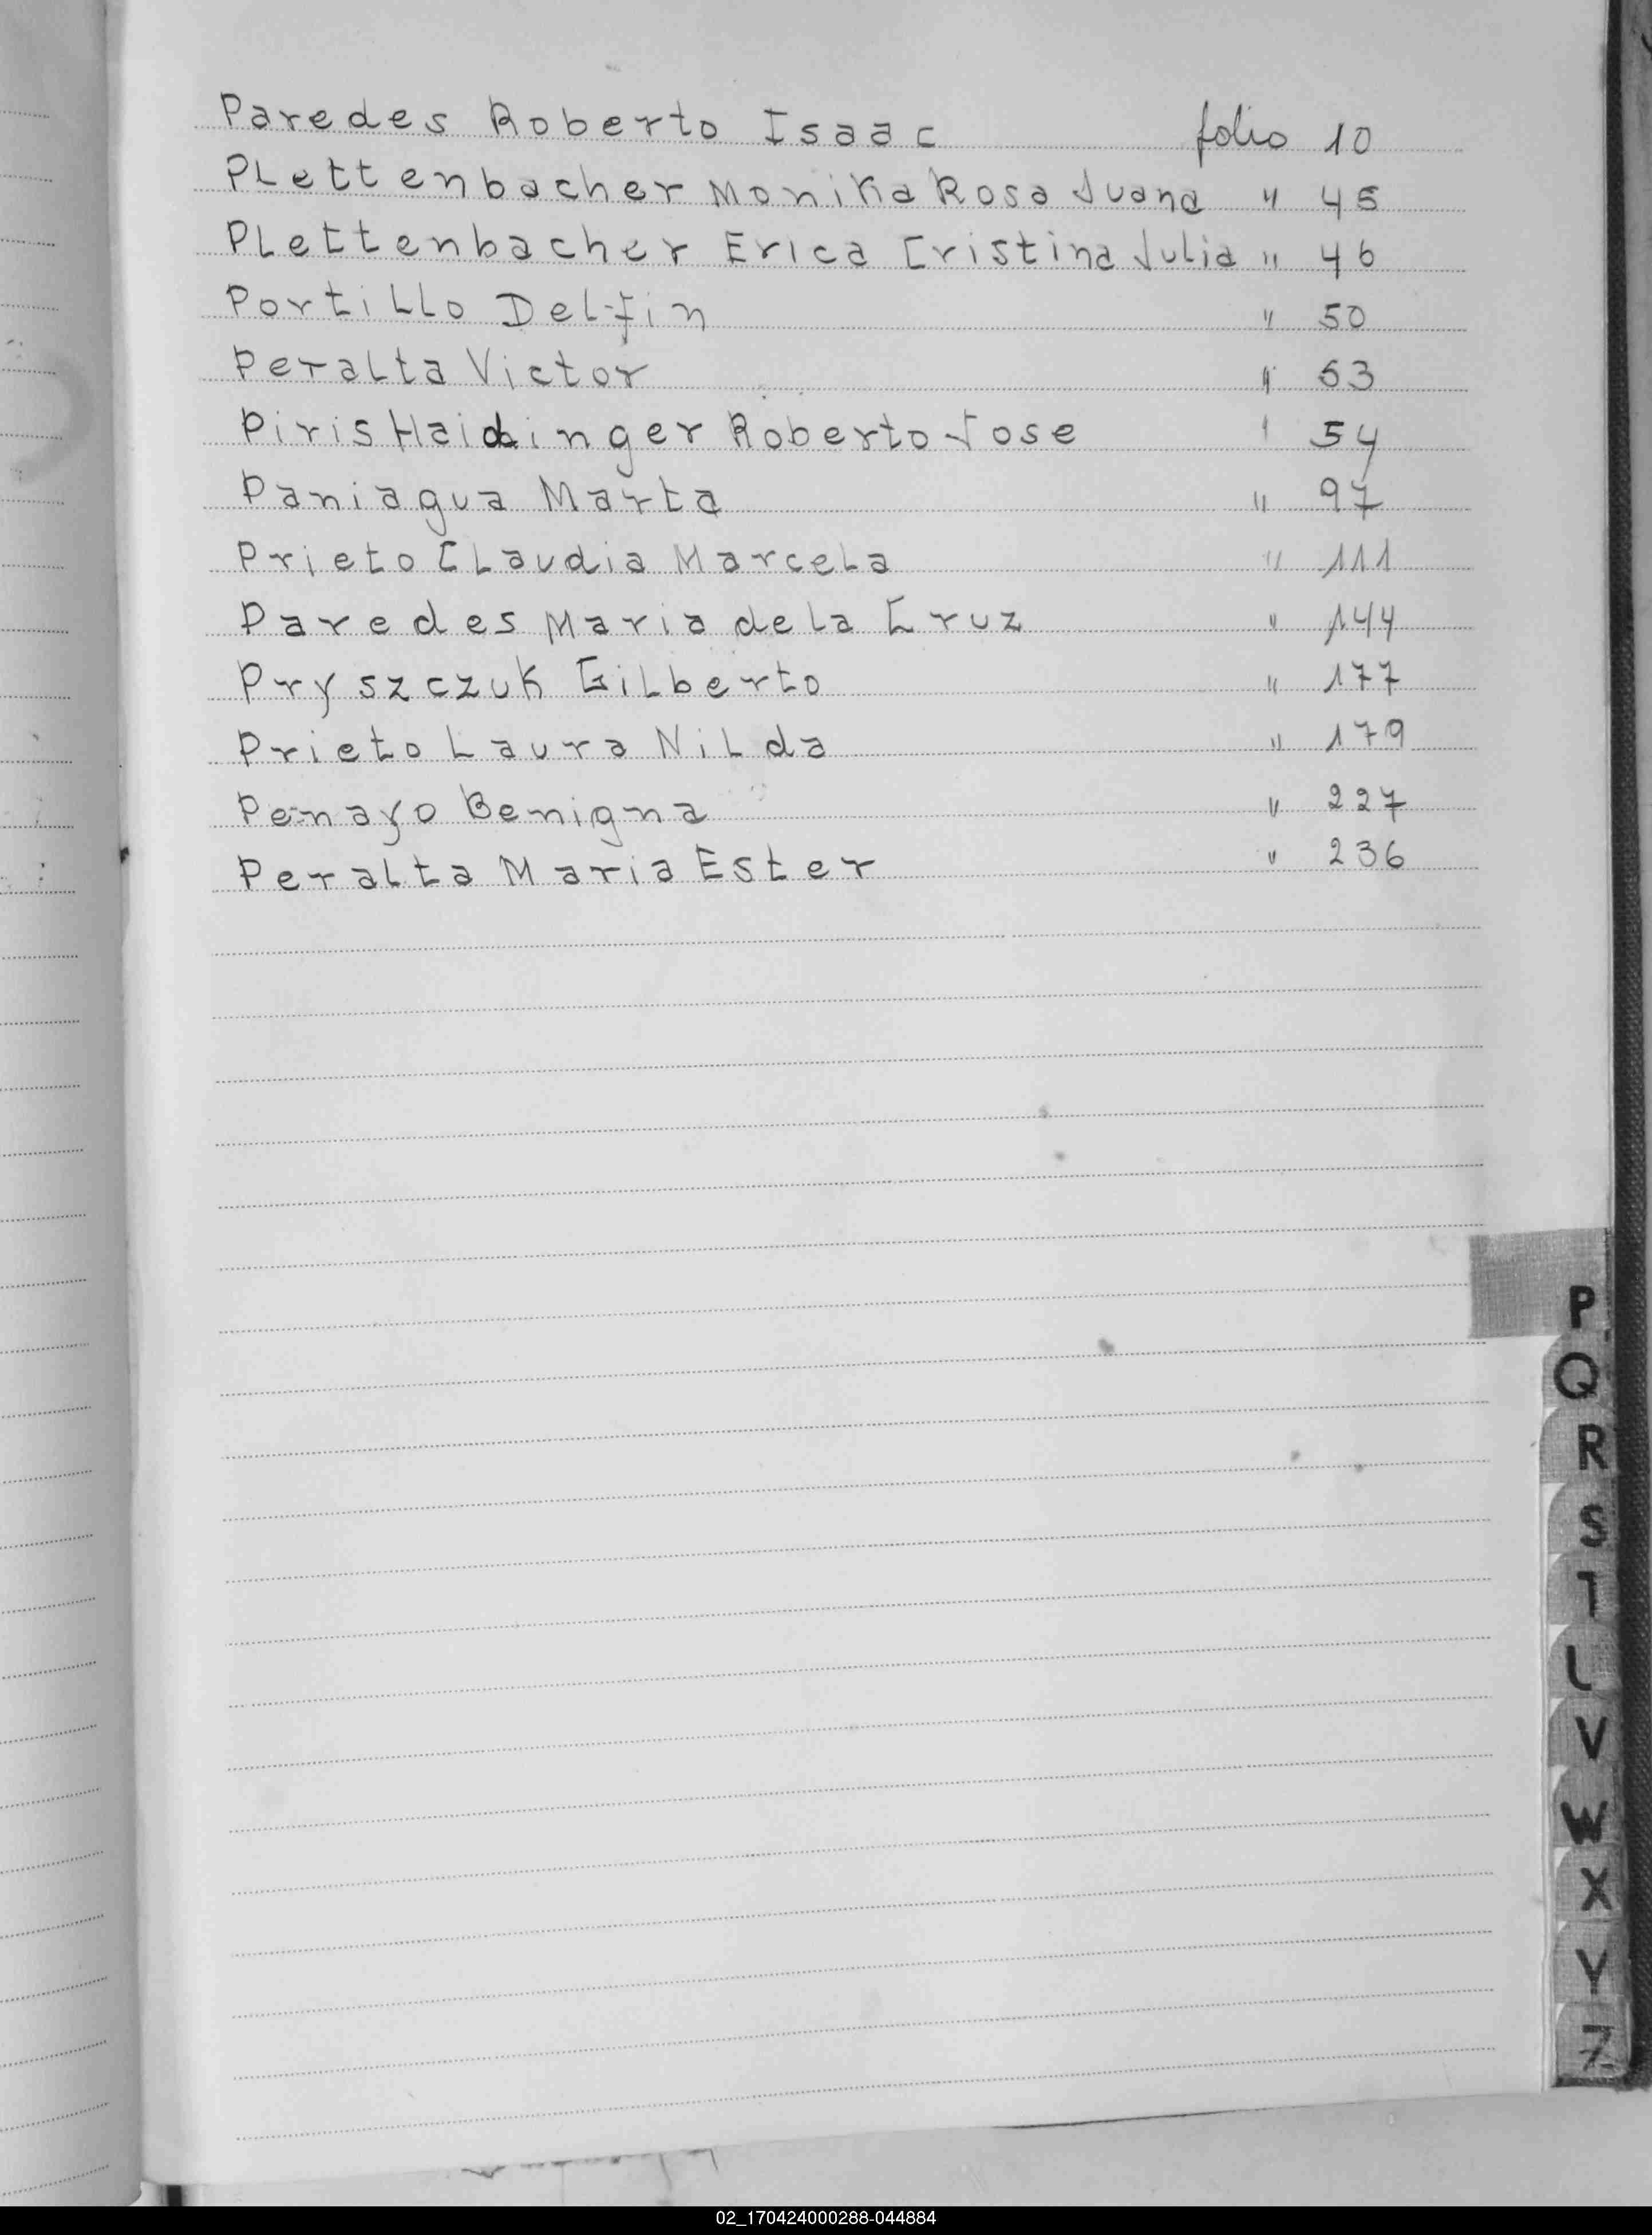 Paredes Roberto Isaac folio 10
Plettenbacher Monika Rosa Juana " 45
Plettenbacher Erica Cristina Julia " 46
Portillo Delfin " 50
Peralta Victor " 53
Piris Haidinger Roberto Jose " 54
Paniagua Marta " 97
Prieto Claudia Marcela " 111
Paredes Maria de la Cruz " 144
Pryszczuk Gilberto " 177
Prieto Laura Nilda " 179
Penayo Benigna " 227
Peralta Maria Ester " 236
P
Q
R
S
T
V
W
X
Y
Z
02_170424000288-044884